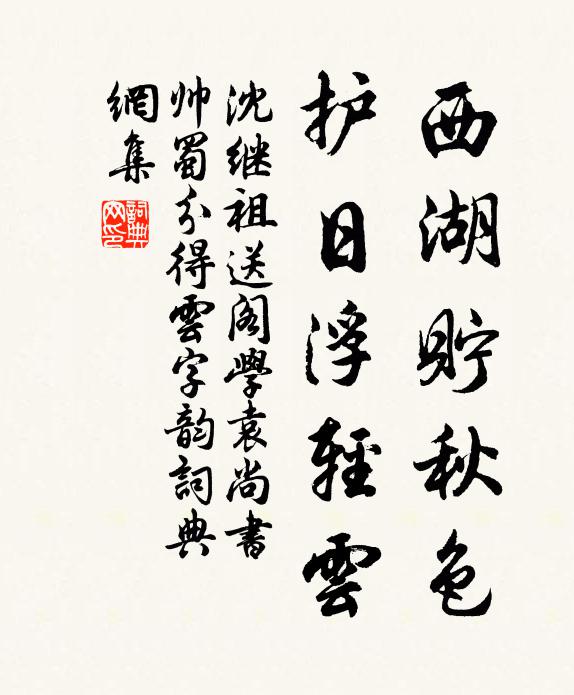 西湖貯秋色
护日浮輕雲
沈继祖送阁學袁尚書
帅蜀分得雲字韵詞典
網集
詞典网印